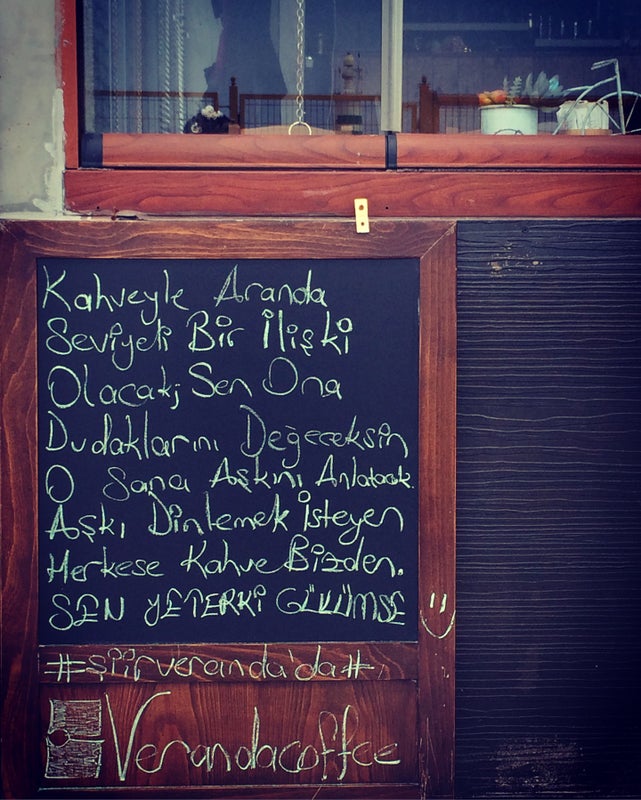 Kahveyle Aranda
Seviyeli Bir İlişki
Olacak; Sen Ona
Dudaklarını Değeceksin
O Sana Aşkını Anlatacak.
Aşkı Dinlemek İsteyen
Herkese Kahve Bizden.
SEN YETERKİ GÜLÜMSE
#şiirveranda'da#
Verandacoffee